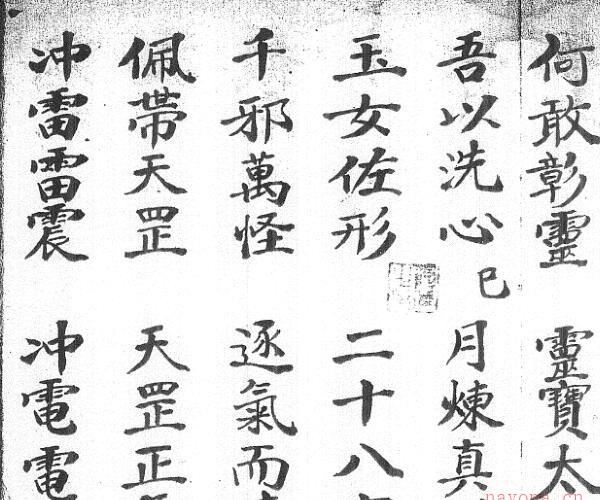 何敢彰靈 靈寶太
吾以洗心 巳月煉真
玉女佐形 二十八
千邪萬怪 逐氣而
佩帶天罡 天罡正
冲雷雷震 冲電電
nayona.cn